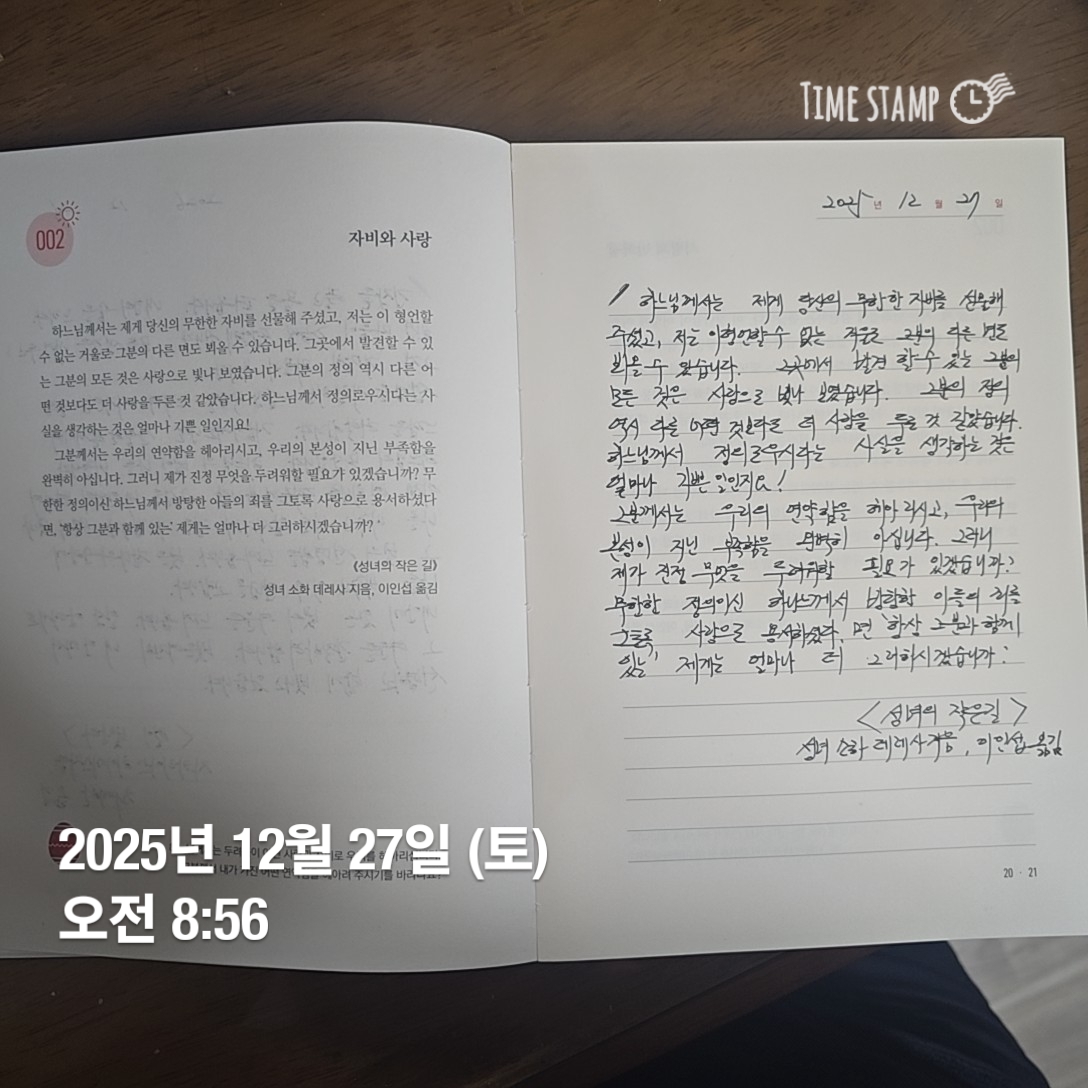 TIME STAMP
002
자비와 사랑
하느님께서는 제게 당신의 무한한 자비를 선물해 주셨고, 저는 이 형언할
수 없는 거울로 그분의 다른 면도 뵈올 수 있습니다. 그곳에서 발견할 수 있
는 그분의 모든 것은 사랑으로 빛나 보였습니다. 그분의 정의 역시 다른 어
떤 것보다도 더 사랑을 두른 것 같았습니다. 하느님께서 정의로우시다는 사
실을 생각하는 것은 얼마나 기쁜 일인지요!
그분께서는 우리의 연약함을 헤아리시고, 우리의 본성이 지닌 부족함을
완벽히 아십니다. 그러니 제가 진정 무엇을 두려워할 필요가 있겠습니까? 무
한한 정의이신 하느님께서 방탕한 아들의 죄를 그토록 사랑으로 용서하셨다
면, '항상 그분과 함께 있는' 제게는 얼마나 더 그러하시겠습니까?
《성녀의 작은 길》
성녀 소화 데레사 지음, 이인섭 옮김
2025년 12월 27일
하느님께서는 제게 당신의 무한한 자비를 선물해
주셨고, 저는 이형언할 수 없는 거울로 그분의 다른 면도
뵈올 수 있습니다. 그곳에서 발견 할 수 있는 그분의
모든 것은 사랑으로 빛나 보였습니다. 그분의 정의
역시 다른 어떤 것보다도 더 사랑을 두른 것 같았습니다.
하느님께서 정의로우시다는 사실을 생각하는 것은
얼마나 기쁜 일인지요!
그분께서는 우리의 연약함을 헤아리시고, 우리의
본성이 지닌 부족함을 완벽히 아십니다. 그러니
제가 진정 무엇을 두려워할 필요가 있겠습니까?
무한한 정의이신 방탕한 아들의 죄를
그토록 사랑으로 용서하셨다면 '항상 그분과 함께
있는' 제게는 얼마나 더 그러하시겠습니까?
<성녀의 작은길>
성녀 소화 데레사지음, 이인섭 옮김
20 · 21
2025년 12월 27일 (토)
오전 8:56